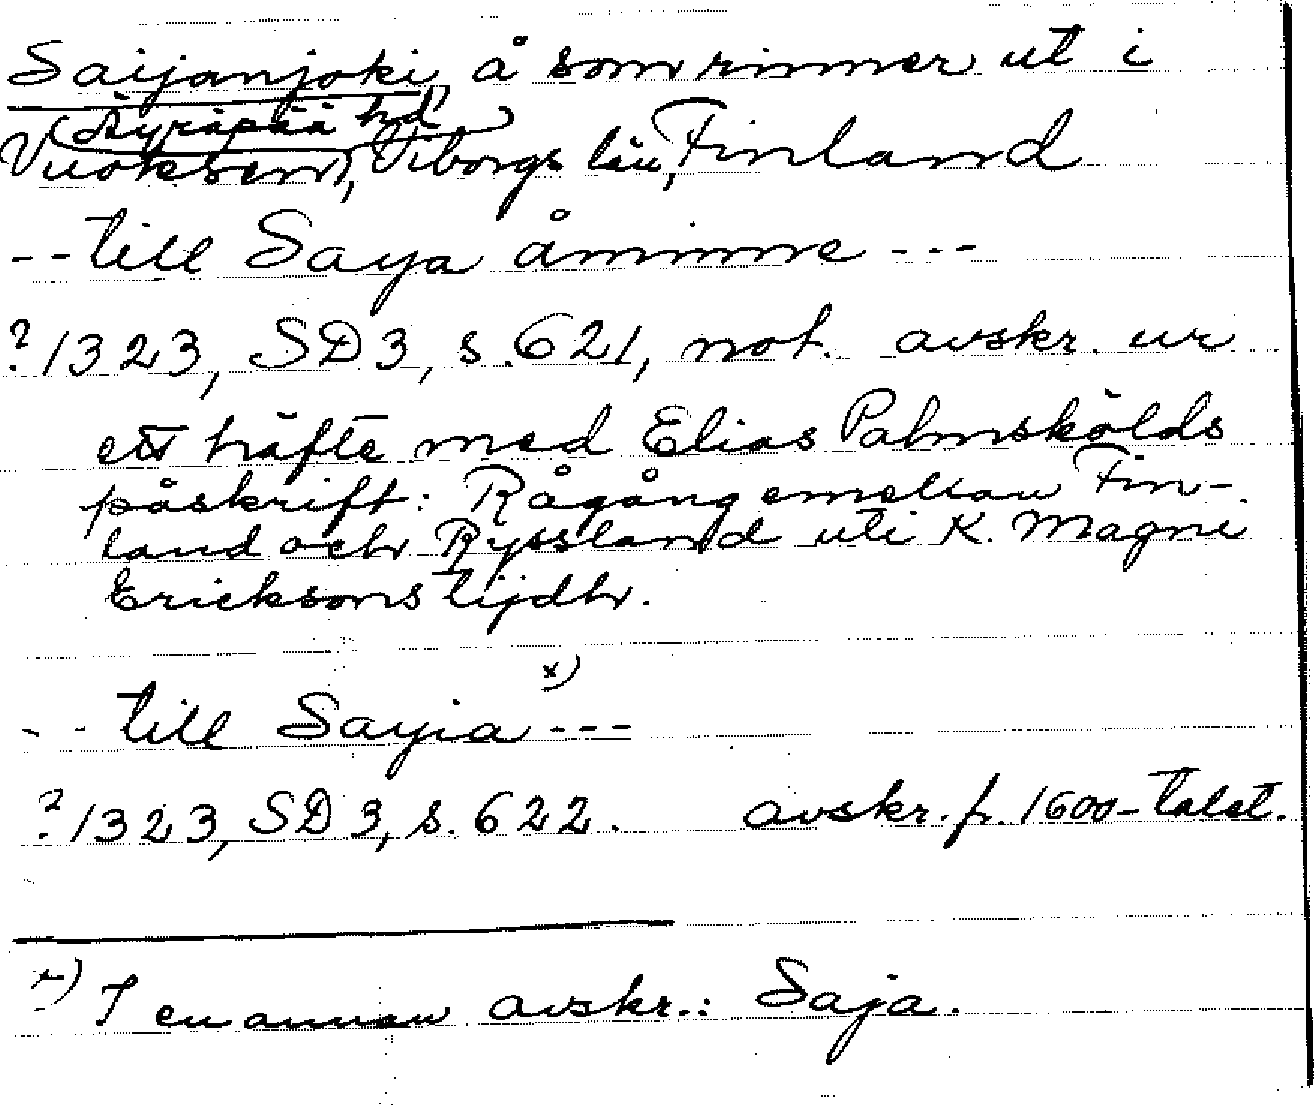 Saijanjoki, å som rinner ut i
(Äyräpää hd)
Vuoksen, Viborgs län, Finland
-- till Saya åminne ---
? 1323, SD 3, s. 621, not. avskr. ur
ett häfte med Elias Palmskölds
påskrift: Rågång emellan Fin-
land och Ryssland uti K. Magni
Ericksons tijdh.
-- till Sayia x) ---
? 1323, SD 3, s. 622. avskr. fr. 1600-talet.
x) I en annan avskr.: Saja.